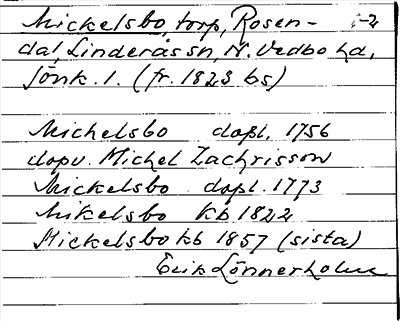 Mickelsbo, torp, Rosen-
dal, Linderås sn, N. Vedbo hd,
Jönk. l. (fr. 1823 bs)
Michelsbo dopl. 1756
dopv. Michel Zachrisson
Mickelsbo dopl. 1773
Mikelsbo kb 1822
Mickelsbo kb 1857 (sista)
Erik Lönnerholm